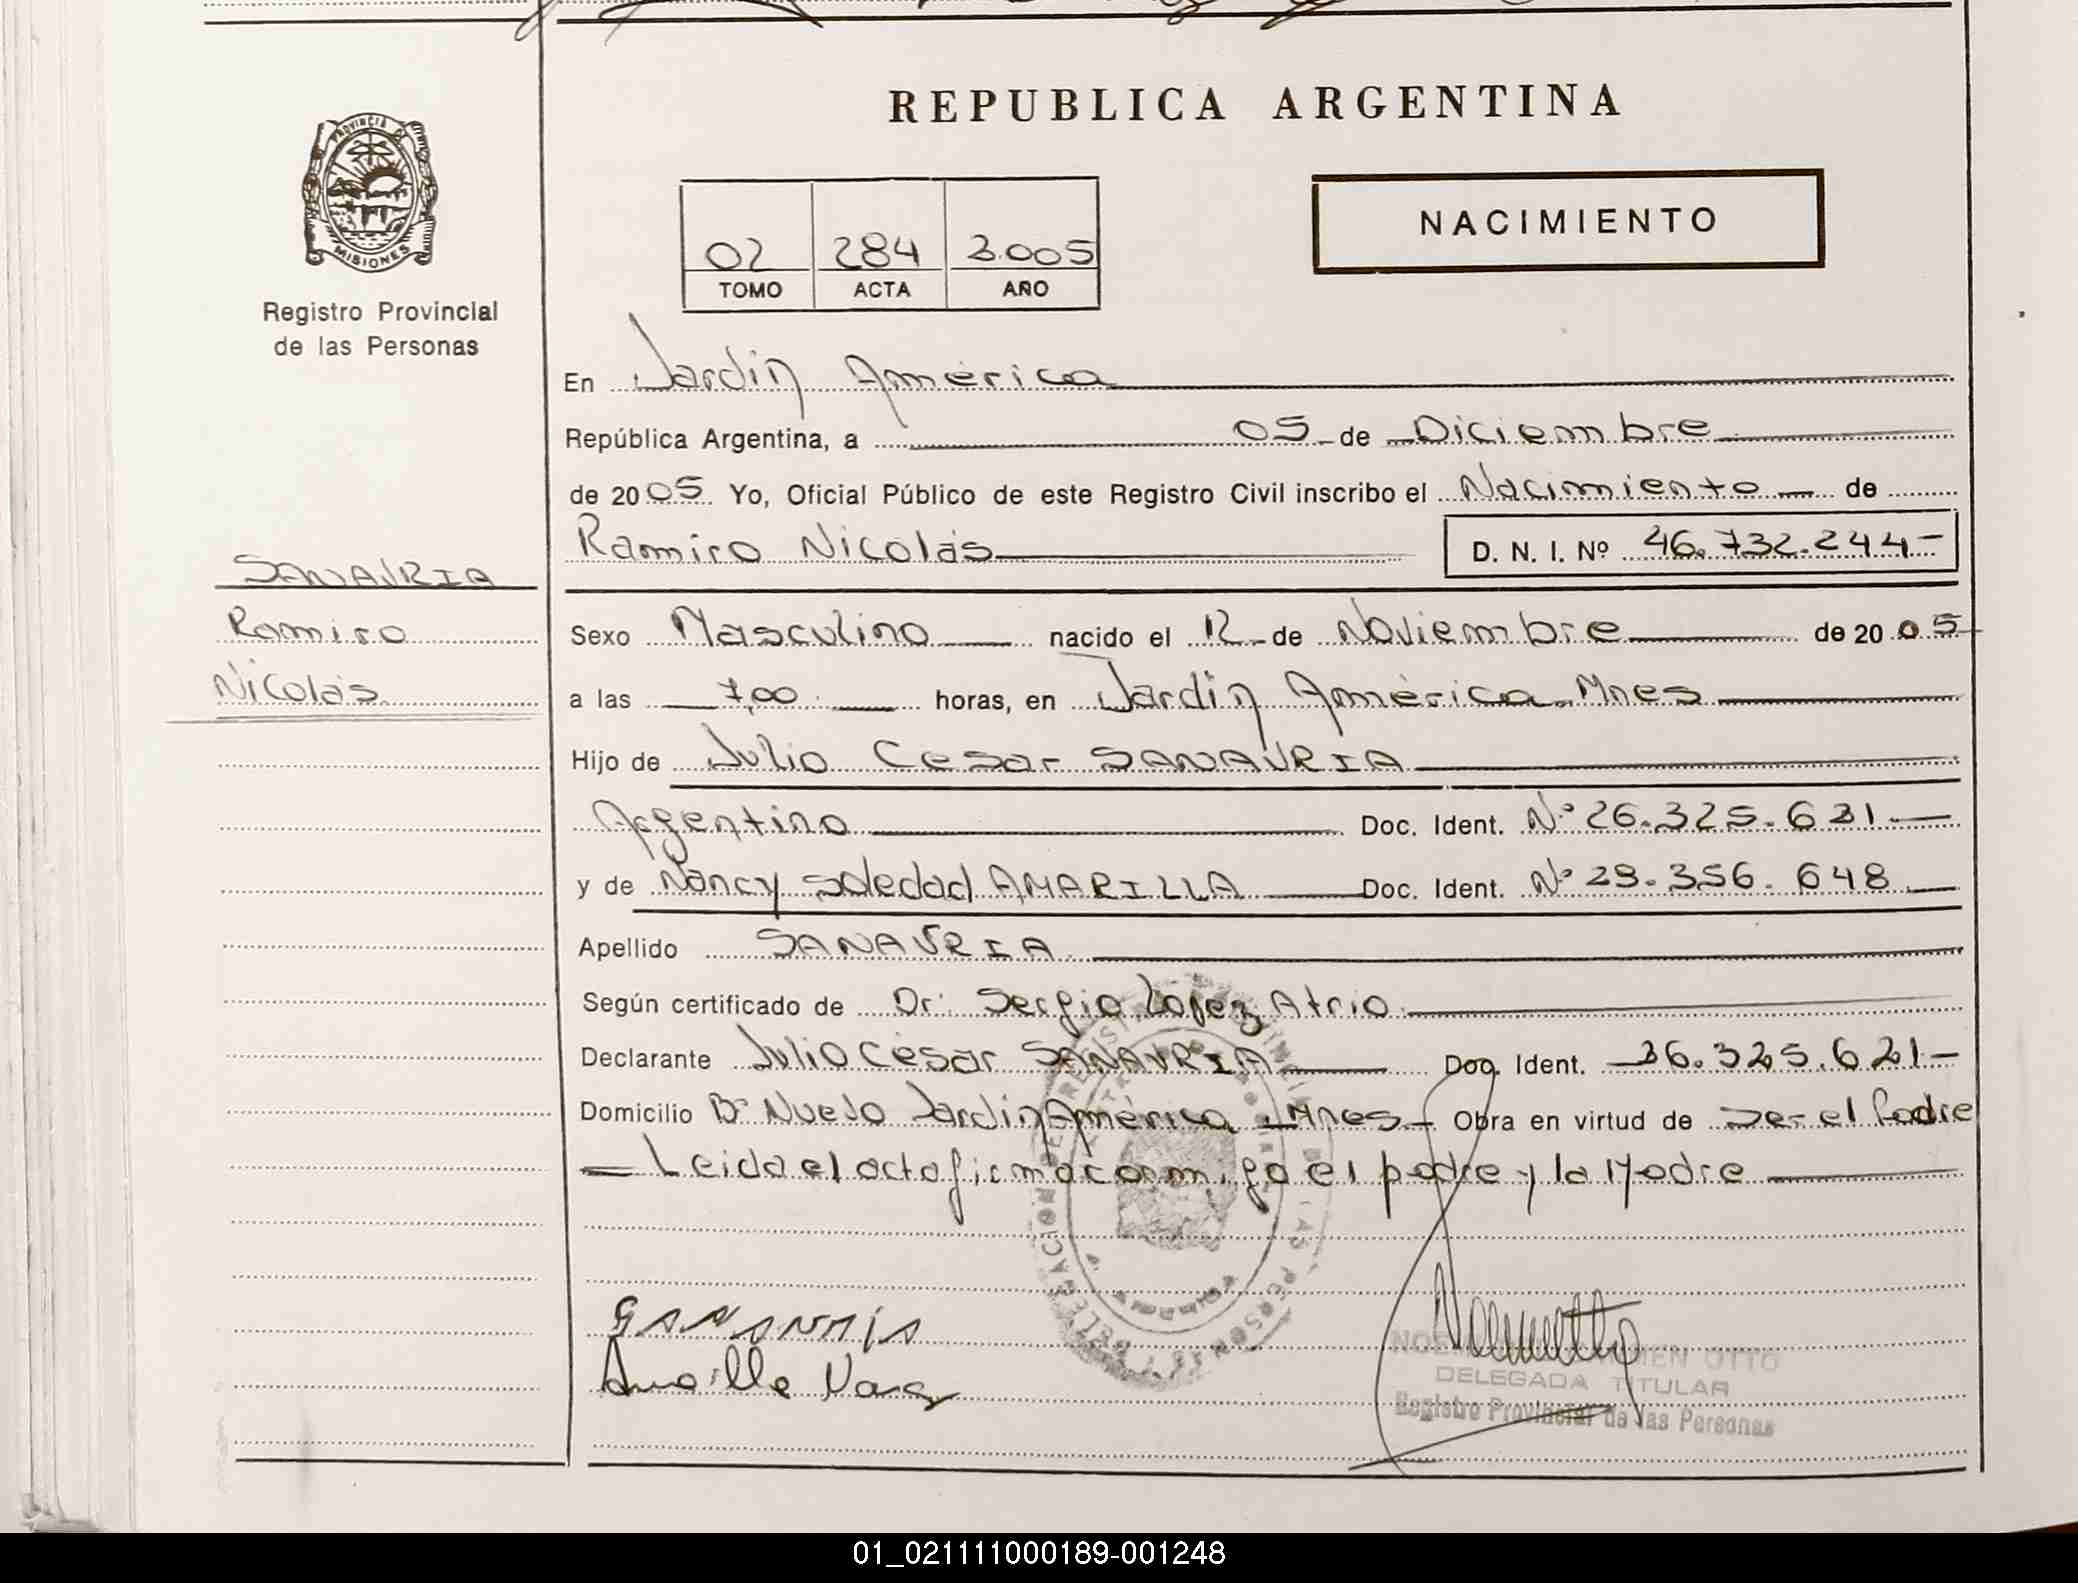 REPUBLICA ARGENTINA
PROVINCIA DE
MISIONES
Registro Provincial
de las Personas
02 284 2.005
TOMO ACTA AÑO
NACIMIENTO
En Jardín América
República Argentina, a 05 de Diciembre
de 2005 Yo, Oficial Público de este Registro Civil inscribo el Nacimiento de
Ramiro Nicolás D. N. I. Nº 46.732.244
SANAVRIA
Ramiro
Nicolás
Sexo Masculino nacido el 12 de Noviembre de 2005
a las 7,00 horas, en Jardín América. Mnes
Hijo de Julio Cesar SANAVRIA
Argentino Doc. Ident. Nº 26.325.621
y de Nancy Soledad AMARILLA Doc. Ident. Nº 29.356.648
Apellido SANAVRIA
Según certificado de Dr. Sergio Lopez Atrio
Declarante Julio César SANAVRIA Doc. Ident. 26.325.621
Domicilio Bº Nuevo Jardín América Mnes Obra en virtud de ser el Padre
Leida el acta firma conmigo el padre y la Madre
SANAVRIA
Amarilla Nancy
CARMEN OTTO
DELEGADA TITULAR
Registro Provincial de las Personas
01_021111000189-001248